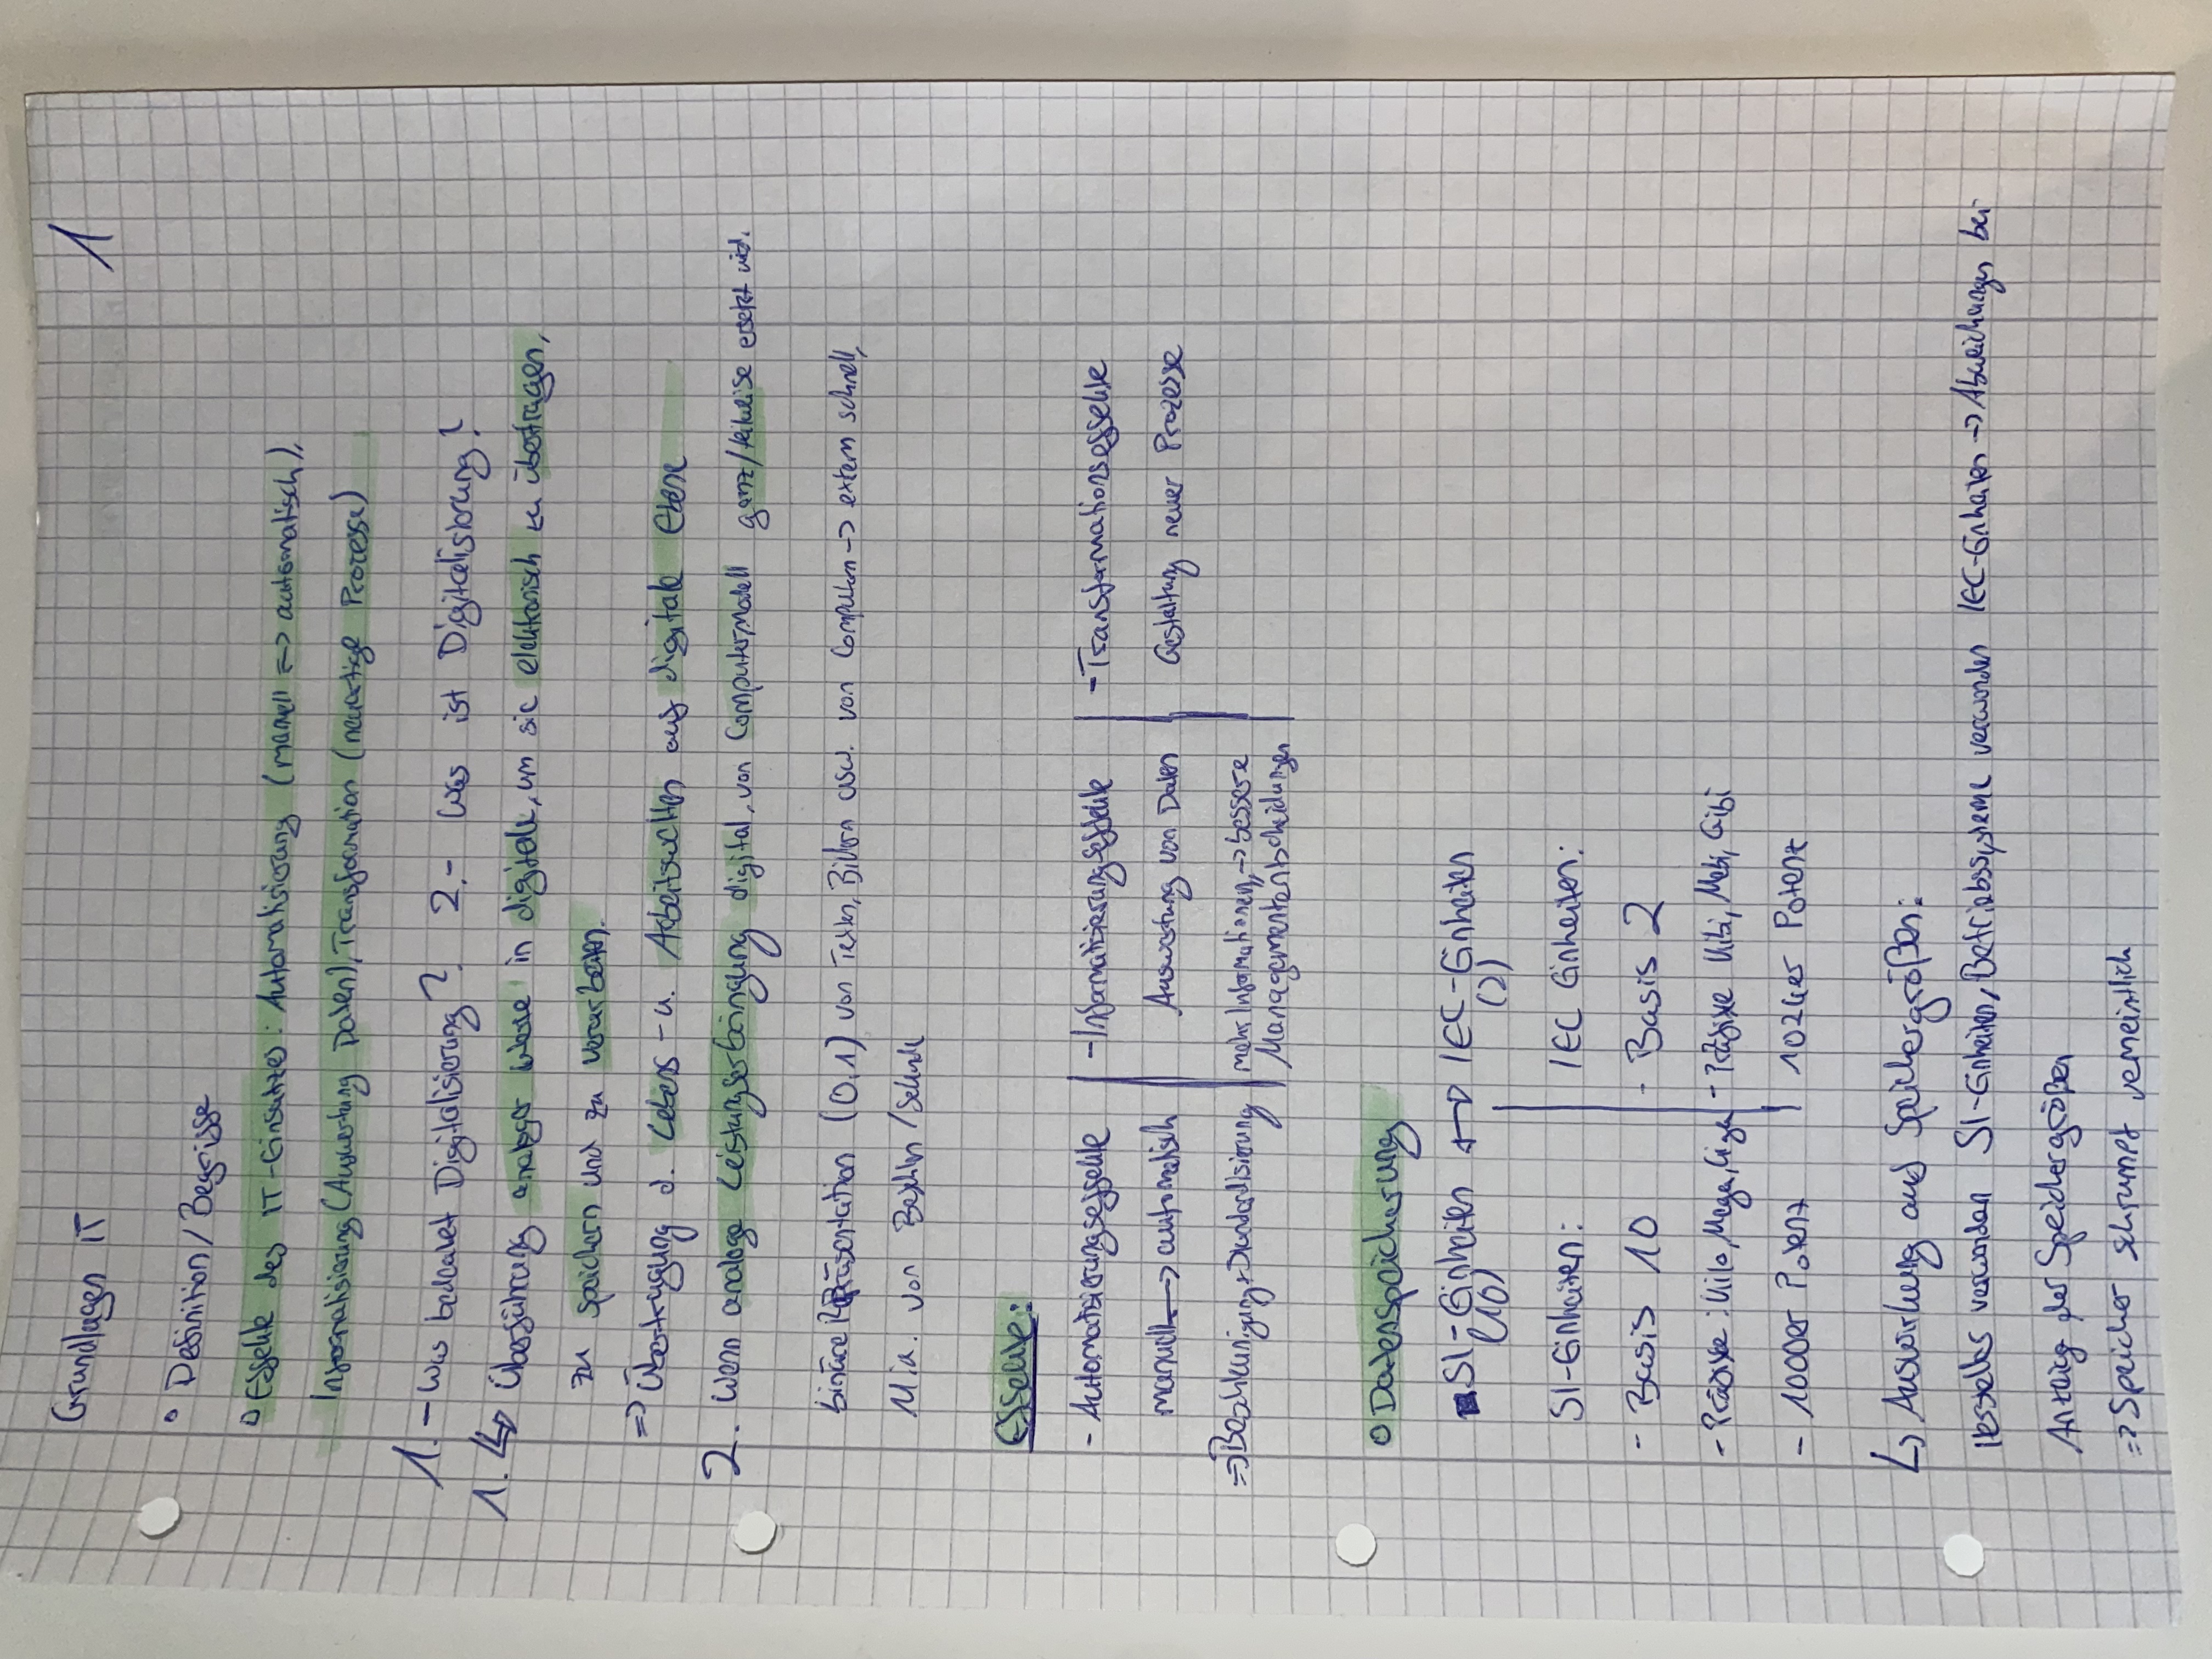 1
Grundlagen IT
• Definition/Begriffe
• Effekte des IT-Einsatzes: Automatisierung (manuell => automatisch),
Informatisierung (Auswertung Daten), Transformation (neuartige Prozesse)
1.- Was bedeutet Digitalisierung? 2.- Was ist Digitalisierung?
1. ↳ Überführung analoger Werte in digitale, um sie elektronisch zu übertragen,
zu speichern und zu verarbeiten.
=> Übertragung d. Lebens- u. Arbeitswelten auf digitale Ebene
2. Wenn analoge Leistungserbringung digital, von Computermodell ganz/teilweise ersetzt wird.
binäre Präsentation (0,1) von Texten, Bildern usw. von Computern -> extern schnell,
Mia. von Befehlen/Sekunde
Effekte:
- Automatisierungseffekte | - Informatisierungseffekte | - Transformationseffekte
manuell -> automatisch | Auswertung von Daten | Gestaltung neuer Prozesse
=> Beschleunigung + Standardisierung | mehr Informationen, -> bessere
Managemententscheidungen
• Datenspeicherung
SI-Einheiten <-> IEC-Einheiten
(10) (2)
SI-Einheiten: | IEC Einheiten:
- Basis 10 | - Basis 2
- Präfixe: Kilo, Mega, Giga | - Präfixe Kibi, Mebi, Gibi
- 1000er Potenz | 1024er Potenz
↳ Auswirkung auf Speichergrößen:
verwenden SI-Einheiten, Betriebssysteme verwenden IEC-Einheiten -> Abweichungen bei
Anzeig der Speichergrößen
=> Speicher schrumpft vermeintlich